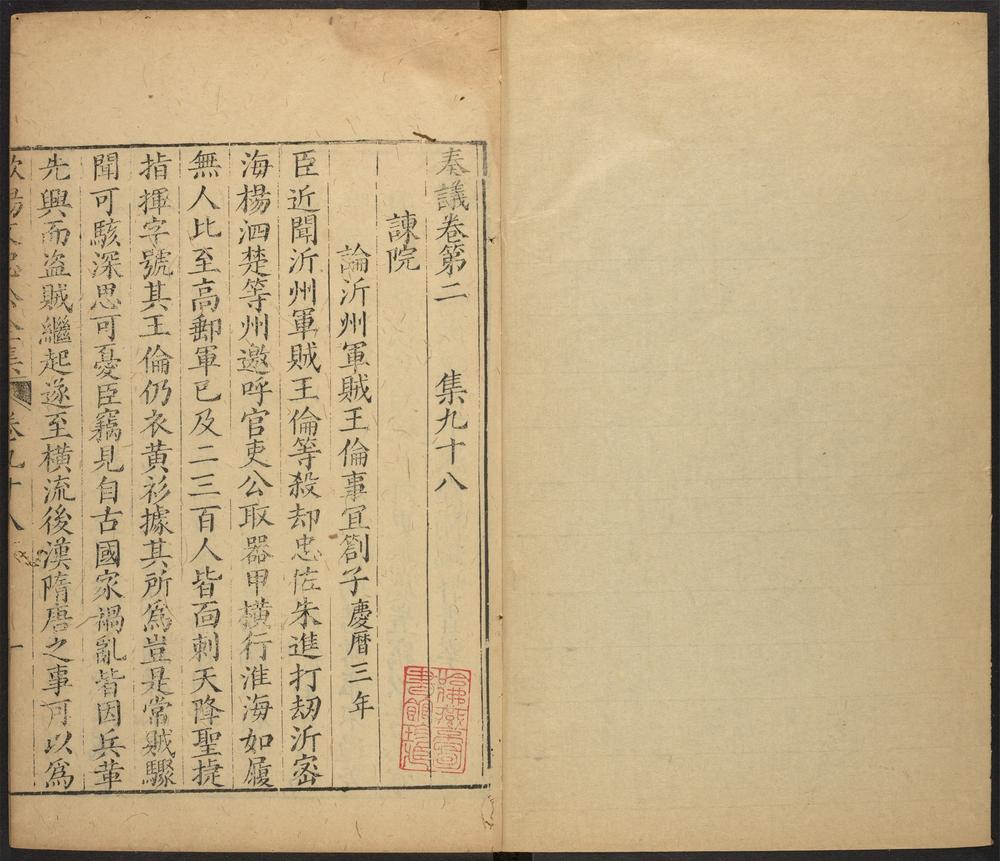 奏議卷第二　集九十八
諫院
論沂州軍賊王倫事宜劄子慶曆三年
臣近聞沂州軍賊王倫等殺却忠佐朱進打刼沂密
海楊泗楚等州邀呼官吏公取器甲橫行淮海如履
無人比至高郵軍已及二三百人皆面刺天降聖捷
指揮字號其王倫仍衣黃衫據其所爲豈是常賊驟
聞可駭深思可憂臣竊見自古國家禍亂皆因兵革
先興而盜賊繼起遂至橫流後漢隋唐之事可以爲
歐陽文忠公全集　卷九十八　一
哈佛燕京圖
書館珍藏